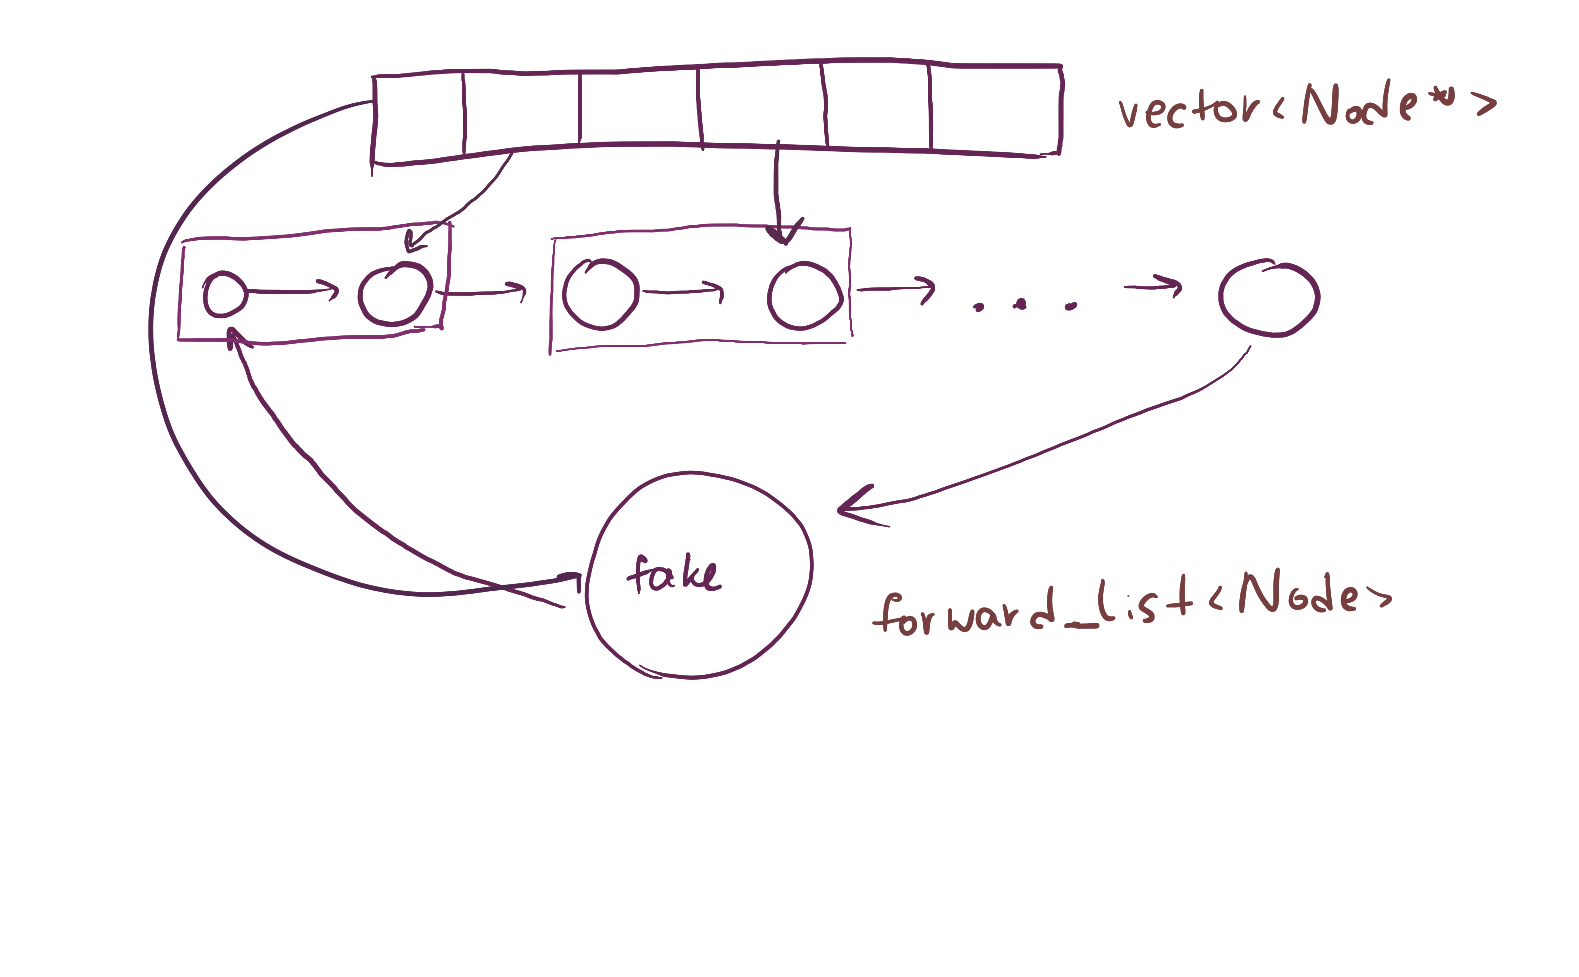 vector<Node*>
fake
forward_list<Node>